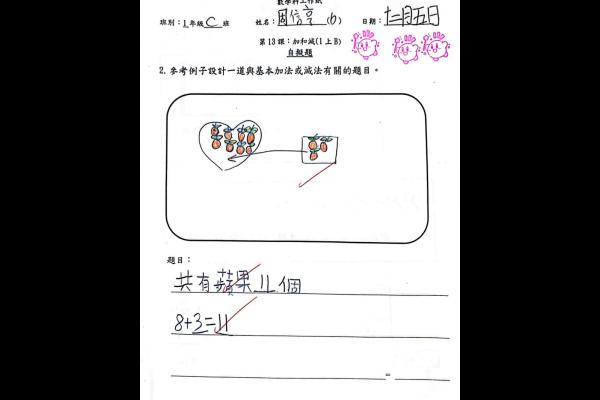 數學科工作紙
班別：1年級C班 姓名：周信亨(6) 日期：十二月五日
第13課：加和減(1上B)
自擬題
2. 參考例子設計一道與基本加法或減法有關的題目。
題目：
共有蘋果11個
8+3=11
=